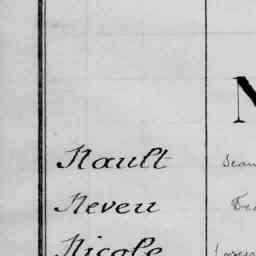 N
Nault Jean
Neveu
Nicole